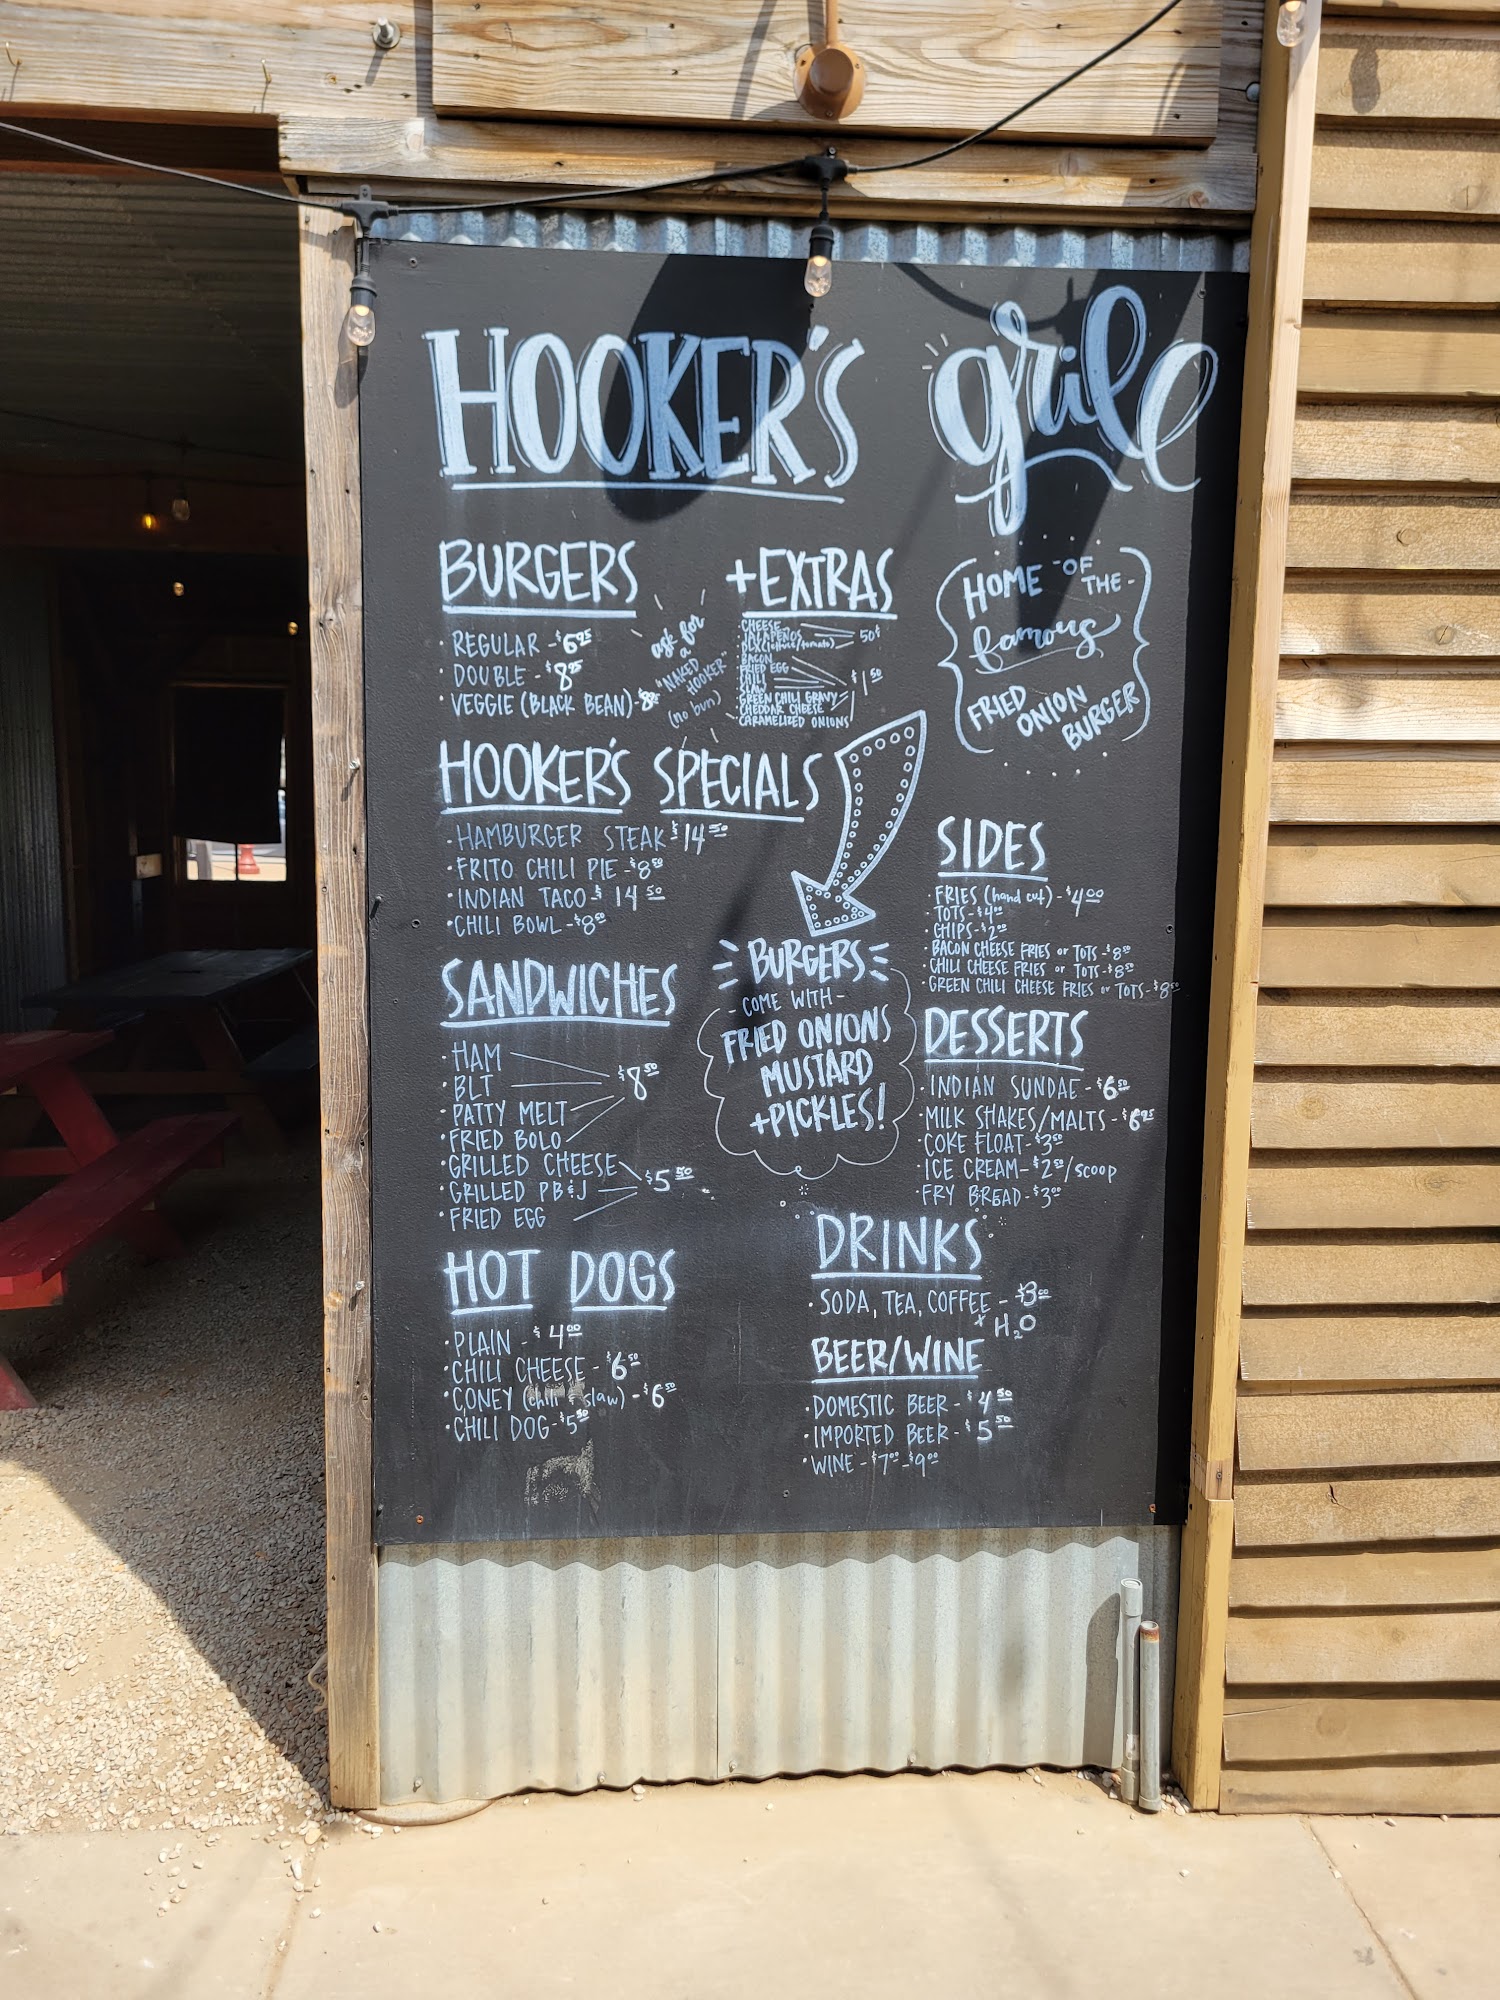 HOOKER'S grill
BURGERS
· REGULAR - $6.95
· DOUBLE - $8.95
· VEGGIE (BLACK BEAN) - 8
ask for
a
"NAKED
HOOKER"
(no bun)
+EXTRAS
CHEESE
· JALAPEÑOS
· DLX (lettuce/tomato)
50¢
BACON
FRIED EGG
CHILI
SLAW
GREEN CHILI GRAVY
CHEDDAR CHEESE
CARAMELIZED ONIONS
$1.50
HOME -OF
THE-
famous
FRIED
ONION
BURGER
HOOKER'S SPECIALS
· HAMBURGER STEAK - $14.50
· FRITO CHILI PIE - $8.50
· INDIAN TACO - $14.50
· CHILI BOWL - $8.50
SANDWICHES
· HAM
· BLT
· PATTY MELT
· FRIED BOLO
$8.50
· GRILLED CHEESE
· GRILLED PB&J
· FRIED EGG
$5.50
HOT DOGS
· PLAIN - $4.00
· CHILI CHEESE - $6.50
· CONEY (chili & slaw) - $6.50
· CHILI DOG - $5.50
BURGERS
- COME WITH -
FRIED ONIONS
MUSTARD
+PICKLES!
SIDES
· FRIES (hand cut) - $4.00
· TOTS - $4.00
· CHIPS - $2.00
· BACON CHEESE FRIES or TOTS - $8.50
· CHILI CHEESE FRIES or TOTS - $8.50
· GREEN CHILI CHEESE FRIES or TOTS - $8.50
DESSERTS
· INDIAN SUNDAE - $6.50
· MILK SHAKES/MALTS - $6.95
· COKE FLOAT - $3.50
· ICE CREAM - $2.50/scoop
· FRY BREAD - $3.00
DRINKS
· SODA, TEA, COFFEE - $3.00
* H₂O
BEER/WINE
· DOMESTIC BEER - $4.50
· IMPORTED BEER - $5.50
· WINE - $7.00 - $9.00